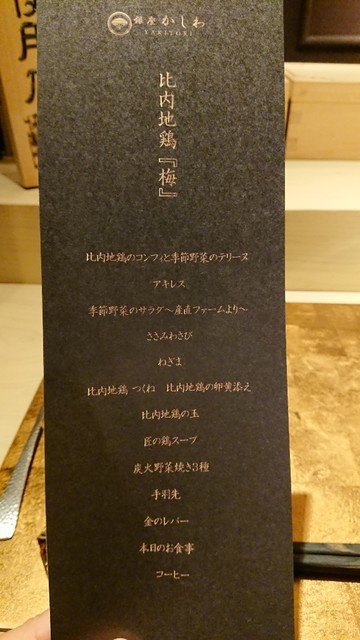 銀座 かしわ
YAKITORI
比内地鶏『梅』
比内地鶏のコンフィと季節野菜のテリーヌ
アキレス
季節野菜のサラダ～産直ファームより～
ささみわさび
ねぎま
比内地鶏 つくね 比内地鶏の卵黄添え
比内地鶏の玉
匠の鶏スープ
炭火野菜焼き3種
手羽先
金のレバー
本日のお食事
コーヒー